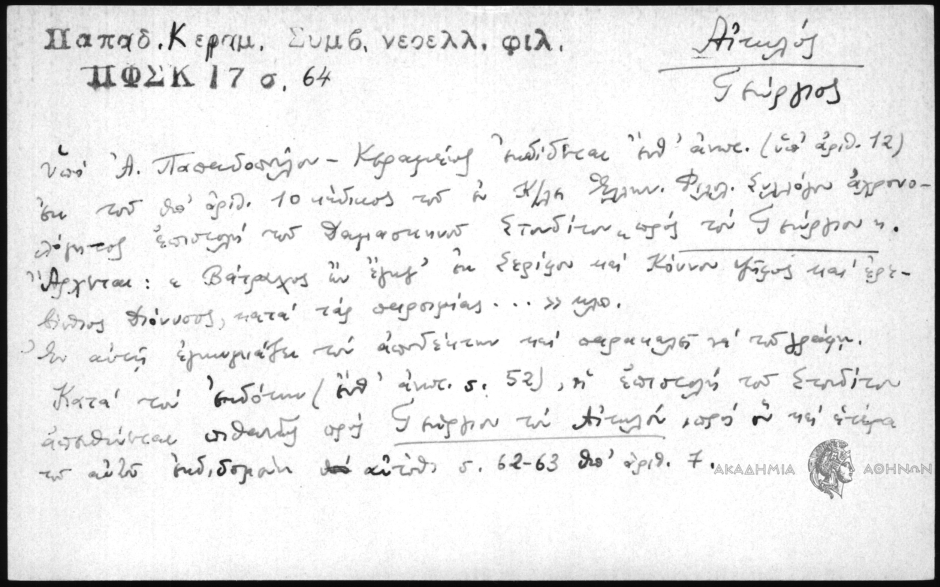 Παπαδ. Κεραμ. Συμβ. νεοελλ. φιλ.
ΠΦΣΚ 17 σ. 64
Αἰτωλός
Γεώργιος
Ὑπό Ἀ. Παπαδοπούλου - Κεραμέως ἐκδίδεται ἔνθ' ἀνωτ. (ὑπ' ἀριθ. 12)
ἐκ τοῦ ὑπ' ἀριθ. 10 κώδικος τοῦ ἐν Κ/λει Ἑλλην. Φιλολ. Συλλόγου ἀχρονο-
λόγητος ἐπιστολή τοῦ Δαμασκηνοῦ Στουδίτου "πρός τόν Γεώργιον".
Ἄρχεται: « Βάτραχος ἄν ἔγωγ' ἐκ Σερίφου καί Κόννου ψῆφος καί ἐρε-
βίνθιος Διόνυσος, κατά τάς παροιμίας... » κλπ.
Ἐν αὐτῇ ἐγκωμιάζει τόν ἀποδέκτην καί παρακαλεῖ νά τοῦ γράφῃ.
Κατά τόν ἐκδότην (ἔνθ' ἀνωτ. σ. 52), ἡ ἐπιστολή τοῦ Στουδίτου
ἀπευθύνεται πιθανῶς πρός Γεώργιον τόν Αἰτωλόν, πρός ὅν καί ἑτέρα
τοῦ αὐτοῦ ἐκδιδομένη αὐτόθι σ. 62-63 ὑπ' ἀριθ. 7.
ΑΚΑΔΗΜΙΑ ΑΘΗΝΩΝ